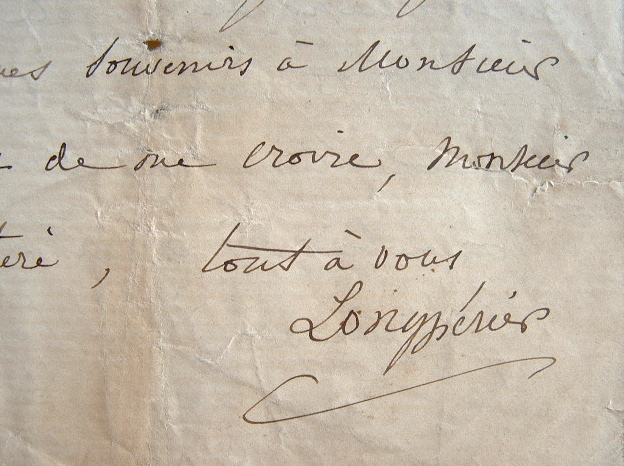 souvenirs à Monsieur
de me croire, Monsieur
, tout à vous
Longpérier